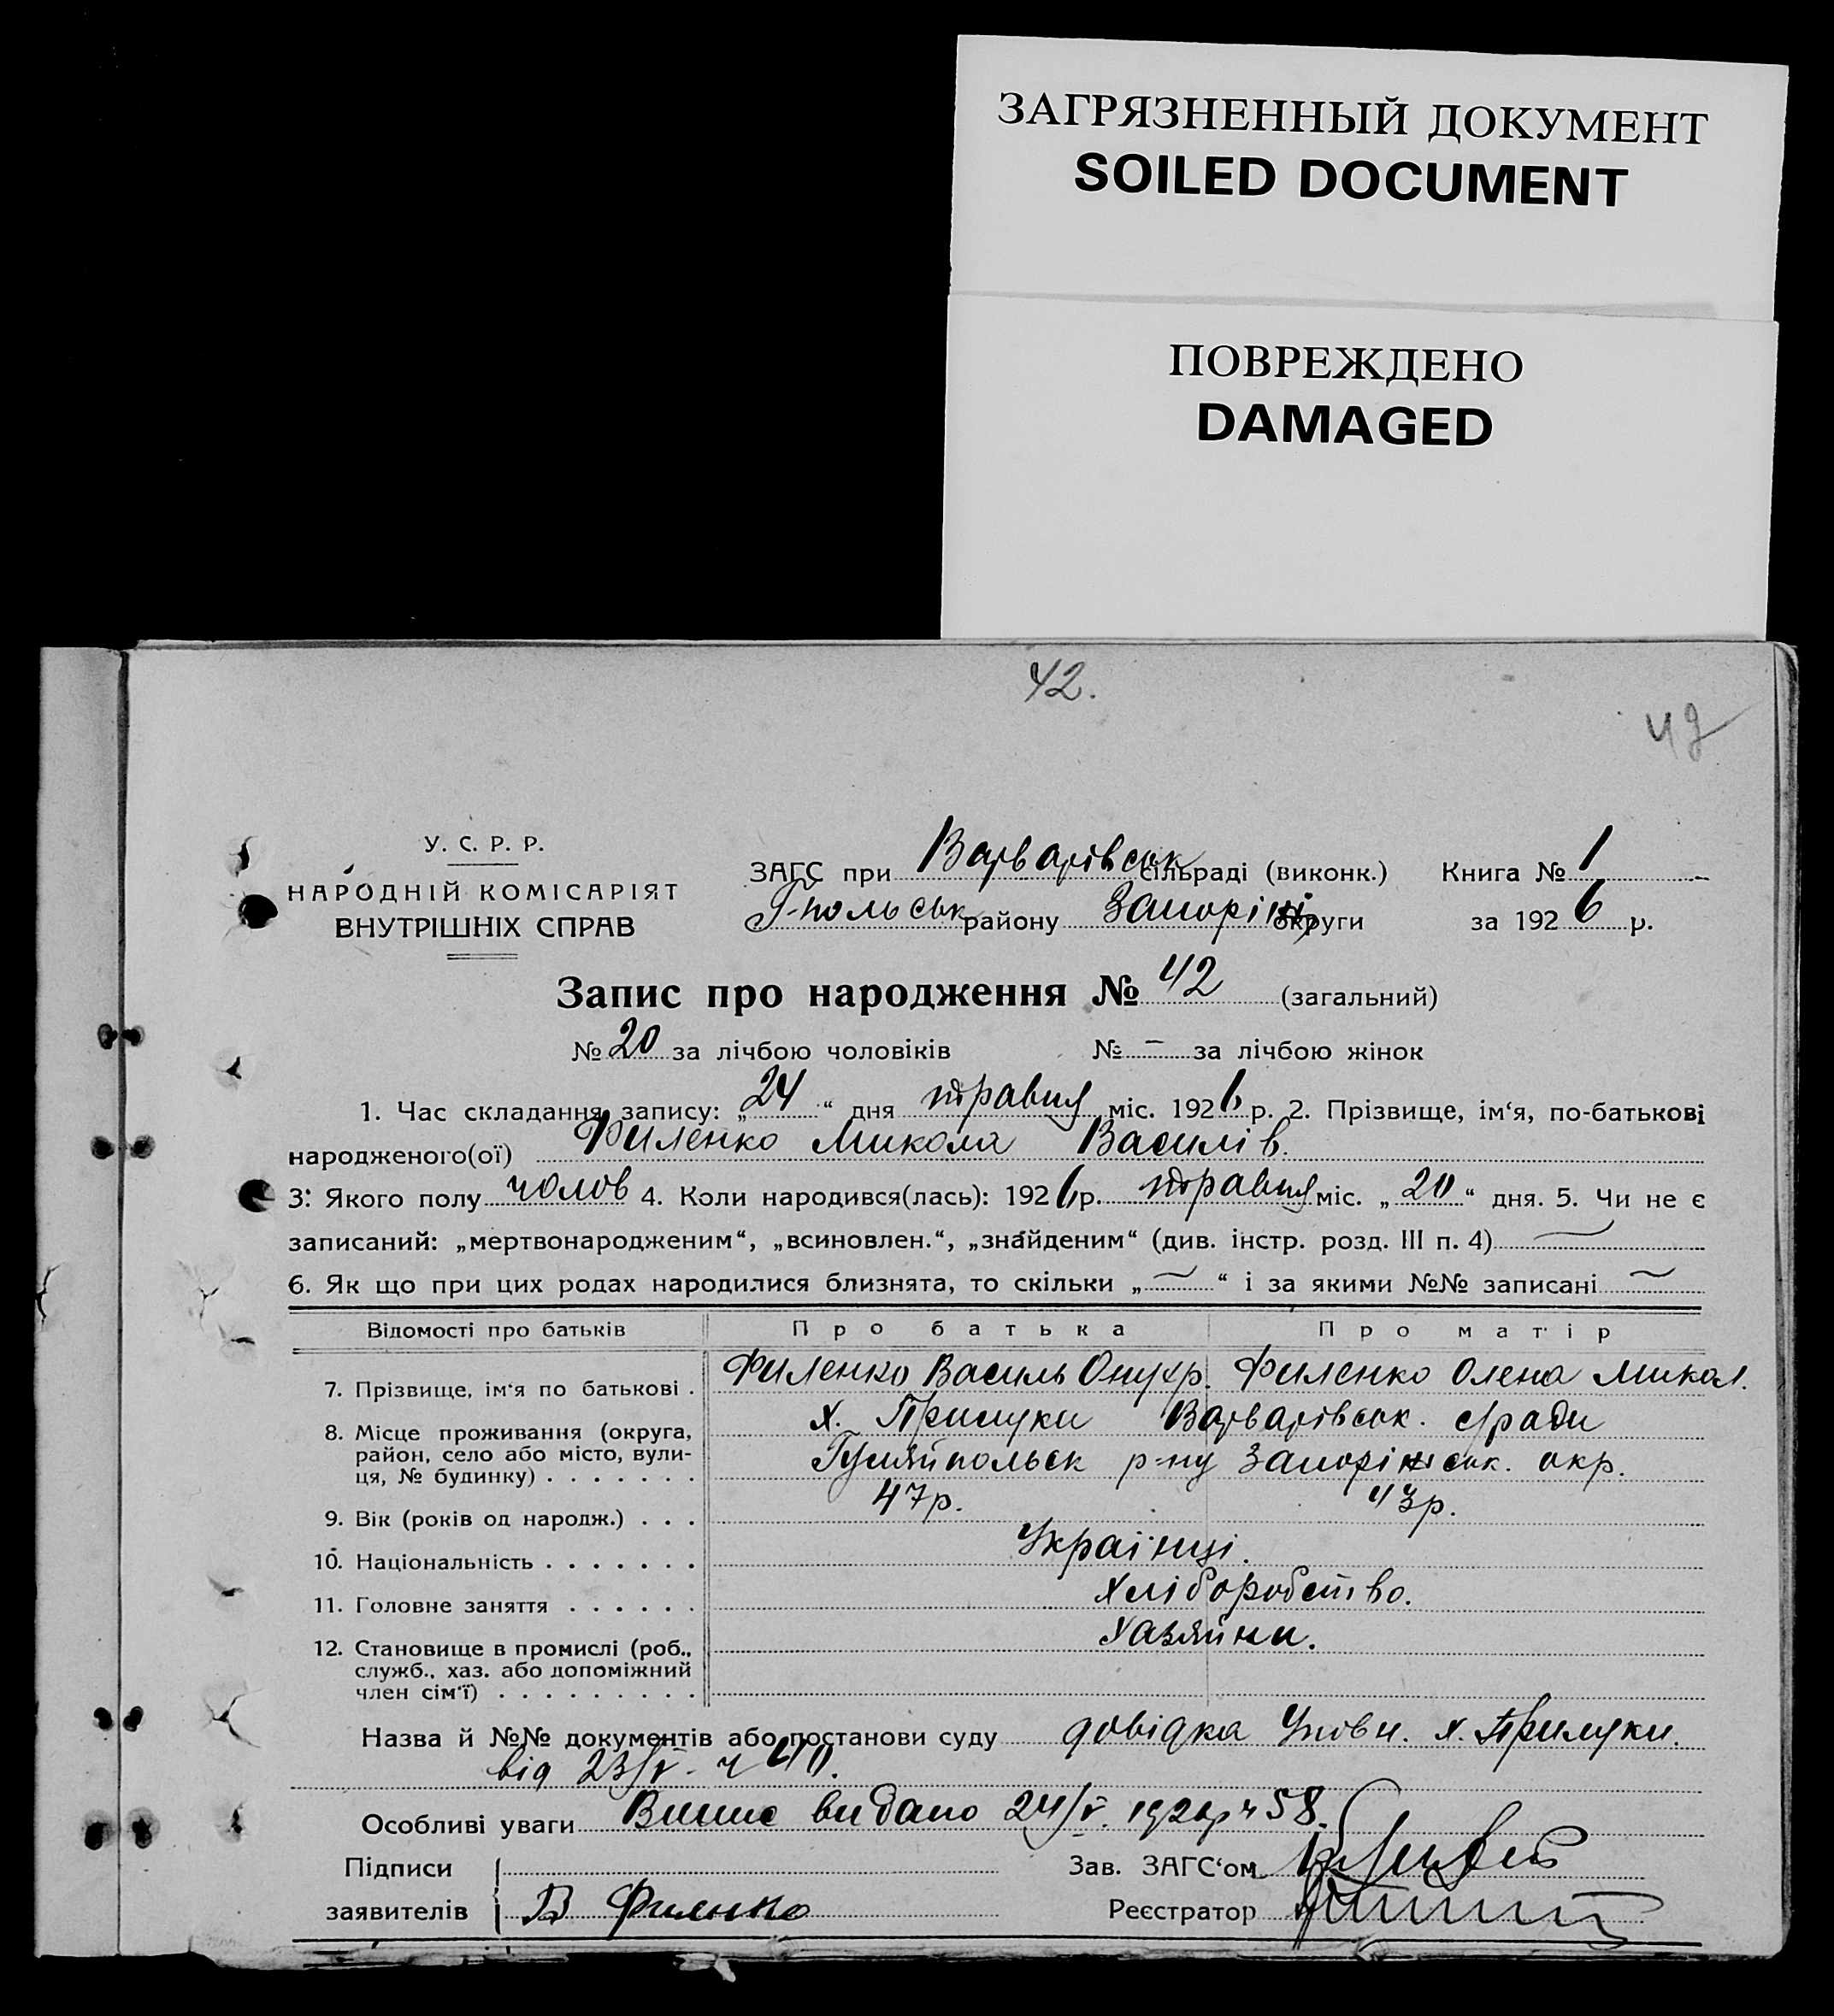 ЗАГРЯЗНЕННЫЙ ДОКУМЕНТ
SOILED DOCUMENT
ПОВРЕЖДЕНО
DAMAGED
42.
42
У. С. Р. Р.
НАРОДНІЙ КОМІСАРІЯТ
ВНУТРІШНІХ СПРАВ
ЗАГС при Варварівськ сільраді (виконк.) Книга № 1
Г-польськ району Запоріж округи за 1926 р.
Запис про народження № 42 (загальний)
№ 20 за лічбою чоловіків № - за лічбою жінок
1. Час складання запису: „24“ дня травня міс. 1926 р. 2. Прізвище, ім‘я, по-батькові
народженого(ої) Филенко Микола Василів.
3. Якого полу чолов 4. Коли народився(лась): 1926 р. травня міс. „20“ дня. 5. Чи не є
записаний: „мертвонародженим“, „всиновлен.“, „знайденим“ (див. інстр. розд. III п. 4) —
6. Як що при цих родах народилися близнята, то скільки „—“ і за якими №№ записані —
Відомості про батьків Про батька Про матір
7. Прізвище, ім‘я по батькові . Филенко Василь Онуфр. Филенко Олена Микол.
8. Місце проживання (округа, х. Прилуки Варварівськ. с/ради
район, село або місто, вули-
ця, № будинку) . . . . . . . Гуляйпольськ р-ну Запоріжськ. окр.
9. Вік (років од народж.) . . . 47р. 43р.
10. Національність . . . . . . . Українці.
11. Головне заняття . . . . . . Хліборобство.
12. Становище в промислі (роб., Хазяйни.
служб., хаз. або допоміжний
член сім‘ї) . . . . . . . . .
Назва й №№ документів або постанови суду довідка Уповн. х. Прилуки.
від 23/V - ч 40.
Особливі уваги Випис видано 24/V. 1926р ч 58.
Підписи Зав. ЗАГС‘ом
заявителів В Филенко Реєстратор